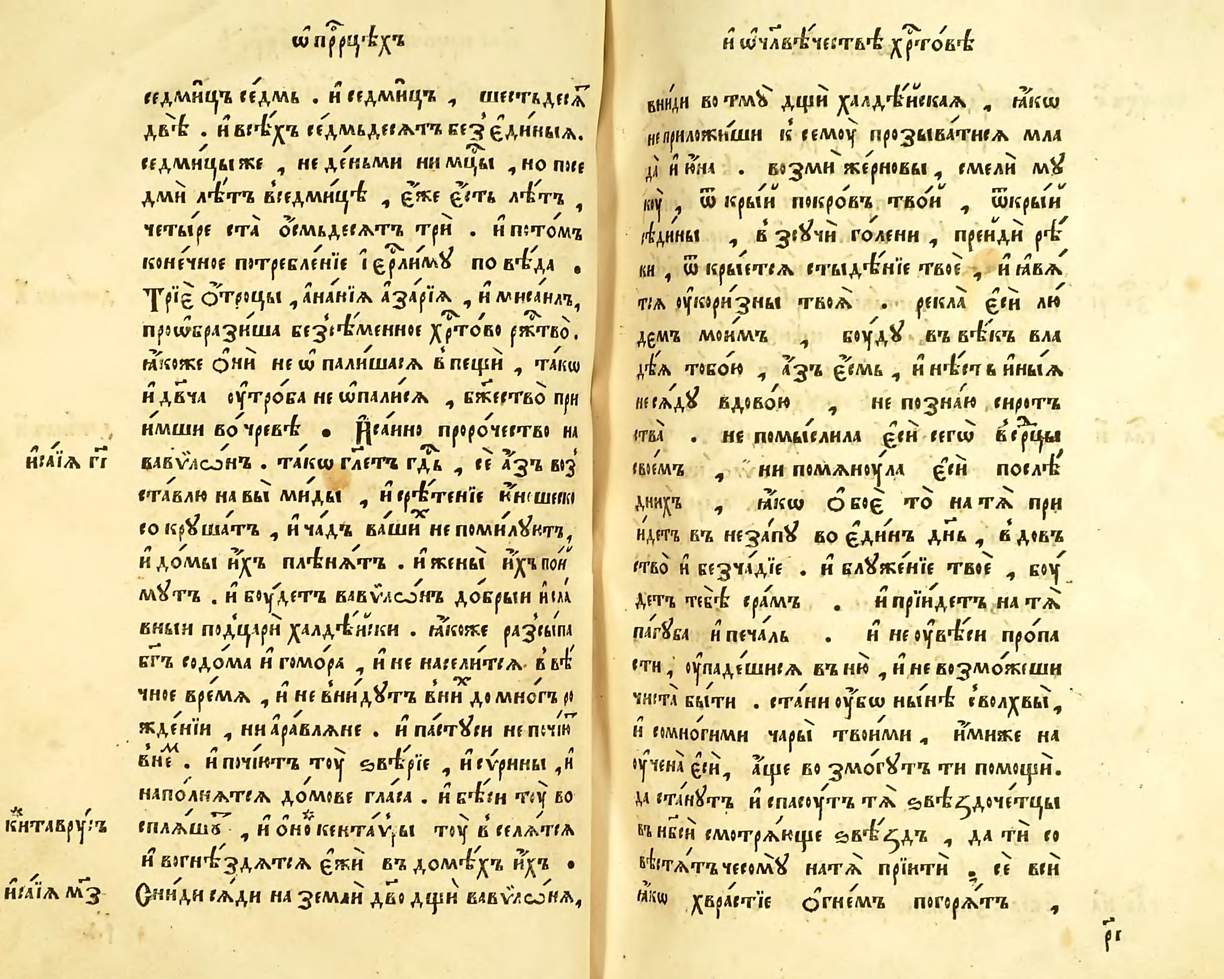 ѡ҆ прⷪ҇рцѣхъ
седми́цъ се́дмь . и҆ седми́цъ , шестьдесѧ́т
двѣ̀ . и҆ всѣ́хъ се́дмьдесѧтъ без̾ є҆ди́ныѧ .
седми́цы же , не де́ньми ни мцⷭ҇ы , но по се
дмѝ лѣ́тъ в̾седмицѣ , є҆́же є҆́сть лѣ́тъ ,
четы́ре ста̀ о҆́смьдесѧтъ трѝ . и҆ пото́мъ
коне́чное потребле́нїе і҆ерⷭ҇ли́мꙋ повѣ́да .
Трїѐ о҆́троцы , а҆на́нїѧ а҆за́рїѧ , и҆ мисаи́лъ ,
проѡ҆брази́ша без̾сѣ́менное хрⷭ҇то́во ржⷭ҇тво̀ .
ꙗ҆́коже ѻ҆нѝ не ѡ҆пали́шасѧ в̾пещѝ , та́кѡ
и҆ дв҃ча ᲂу҆тро́ба не ѡ҆пали́сѧ , бж҃ество̀ при
и́мши во чре́вѣ . И҆са́ино проро́чество на
вавѷлѡ́нъ . та́кѡ гл҃етъ гдⷭ҇ь , сѐ а҆́зъ воз̾
ста́влю на вы̀ ми́ды , и҆ срѣ́тенїе ю҆́ношеско
сокрꙋша́тъ , и҆ ча́дъ ва́шихъ не поми́лꙋютъ ,
и҆ до́мы и҆́хъ плѣнѧ́тъ . и҆ жены̀ и҆́хъ пои́
мꙋтъ . и҆ бꙋ́детъ вавѷлѡ́нъ до́брыи и҆ сла́
вныи под̾ царѝ халдѣ́йски . ꙗ҆́коже разсы́па
бг҃ъ содо́ма и҆ гомо́ра , и҆ не насели́тсѧ в̾вѣ́
чное вре́мѧ , и҆ не вни́дꙋтъ в̾ни́хъ до мно́гъ ро
жде́нїи , ни а҆равлѧ́не . и҆ па́стꙋси не почі́ютъ
в̾не́мъ . и҆ почі́ютъ тꙋ̀ ѕвѣ́рїе , и҆ си́рины , и҆
напо́лнѧтсѧ до́мове гла́са . и҆ бѣ́си тꙋ̀ во
сплѧ́шꙋтъ , и҆ ѻ҆нокента́ѵры тꙋ̀ в̾селѧ́тсѧ
и҆ вогнѣздѧ́тсѧ є҆жѝ въ домѣ́хъ и҆́хъ .
Сни́ди сѧ́ди на землѝ дв҃о дщѝ вавѷлѡ́нѧ ,
и҆са́їѧ г҃і
ки҆нтаврꙋ́съ
и҆са́їѧ м҃з
и҆ ѡ҆ чл҃вѣ́чествѣ хрⷭ҇то́вѣ
вни́ди во тмꙋ̀ дщѝ халдѣ́йскаѧ , ꙗ҆́кѡ
не приложи́ши к̾ семꙋ̀ прозыва́тисѧ мла
да̀ и҆ ю҆́на . возмѝ же́рновы , смелѝ мꙋ
кꙋ̀ , ѿкры́й покро́въ тво́й , ѿкры́й
сѣди́ны , в̾зсꙋчѝ го́лени , преидѝ рѣ́
ки , ѿкры́етсѧ стыдѣ́нїе твоѐ , и҆ ꙗ҆вѧ́
тсѧ ᲂу҆кори́зны твоѧ̀ . рекла̀ є҆сѝ лю́
демъ мои́мъ , бꙋ́дꙋ въ вѣ́къ вла
дѣ́ѧ тобо́ю , а҆́зъ є҆́смь , и҆ нѣ́сть и҆ны́ѧ
не сѧ́дꙋ вдово́ю , не позна́ю сирот
ства̀ . не помы́слила є҆сѝ сегѡ̀ в̾срⷣцы
свое́мъ , ни помѧнꙋ́ла є҆сѝ послѣ́
днихъ , ꙗ҆́кѡ ѻ҆́боѐ то̀ на тѧ̀ при
и́детъ въ неза́пꙋ во є҆ди́нъ дн҃ь , вдовъ
ство̀ и҆ безча́дїе . и҆ блꙋже́нїе твоѐ , бꙋ́
детъ тебѣ̀ сра́мъ . и҆ прїи́детъ на тѧ̀
па́гꙋба и҆ печа́ль . и҆ не ᲂу҆вѣ́си про́па
сти , ᲂу҆паде́шисѧ въ ню̀ , и҆ не возмо́жеши
чиста̀ бы́ти . ста́ни ᲂу҆́бѡ ны́нѣ с̾волхвы̀ ,
и҆ со мно́гими чары̀ твои́ми , и҆́миже на
ᲂу҆че́на є҆сѝ , а҆́ще возмо́гꙋтъ ти помощѝ .
да ста́нꙋтъ и҆ спасꙋ́тъ тѧ̀ ѕвѣздоче́тцы
въ нб҃сѝ смотрѧ́юще ѕвѣ́здъ , да тѝ со
вѣстѧ́тъ чесомꙋ̀ на тѧ̀ прїитѝ . сѐ всѝ
ꙗ҆́кѡ хвра́стїе ѻ҆гне́мъ погорѧ́тъ ,
р҃і